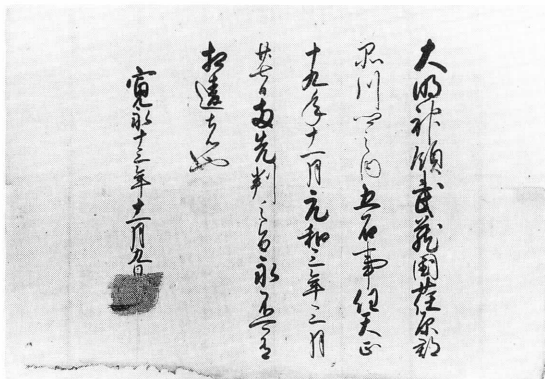 大明神領武蔵国荏原郡
品川郷之内五石事任天正
十九年十一月元和三年三月
廿七日両先判之旨永不可有
相違者也
寛永十三年十一月九日